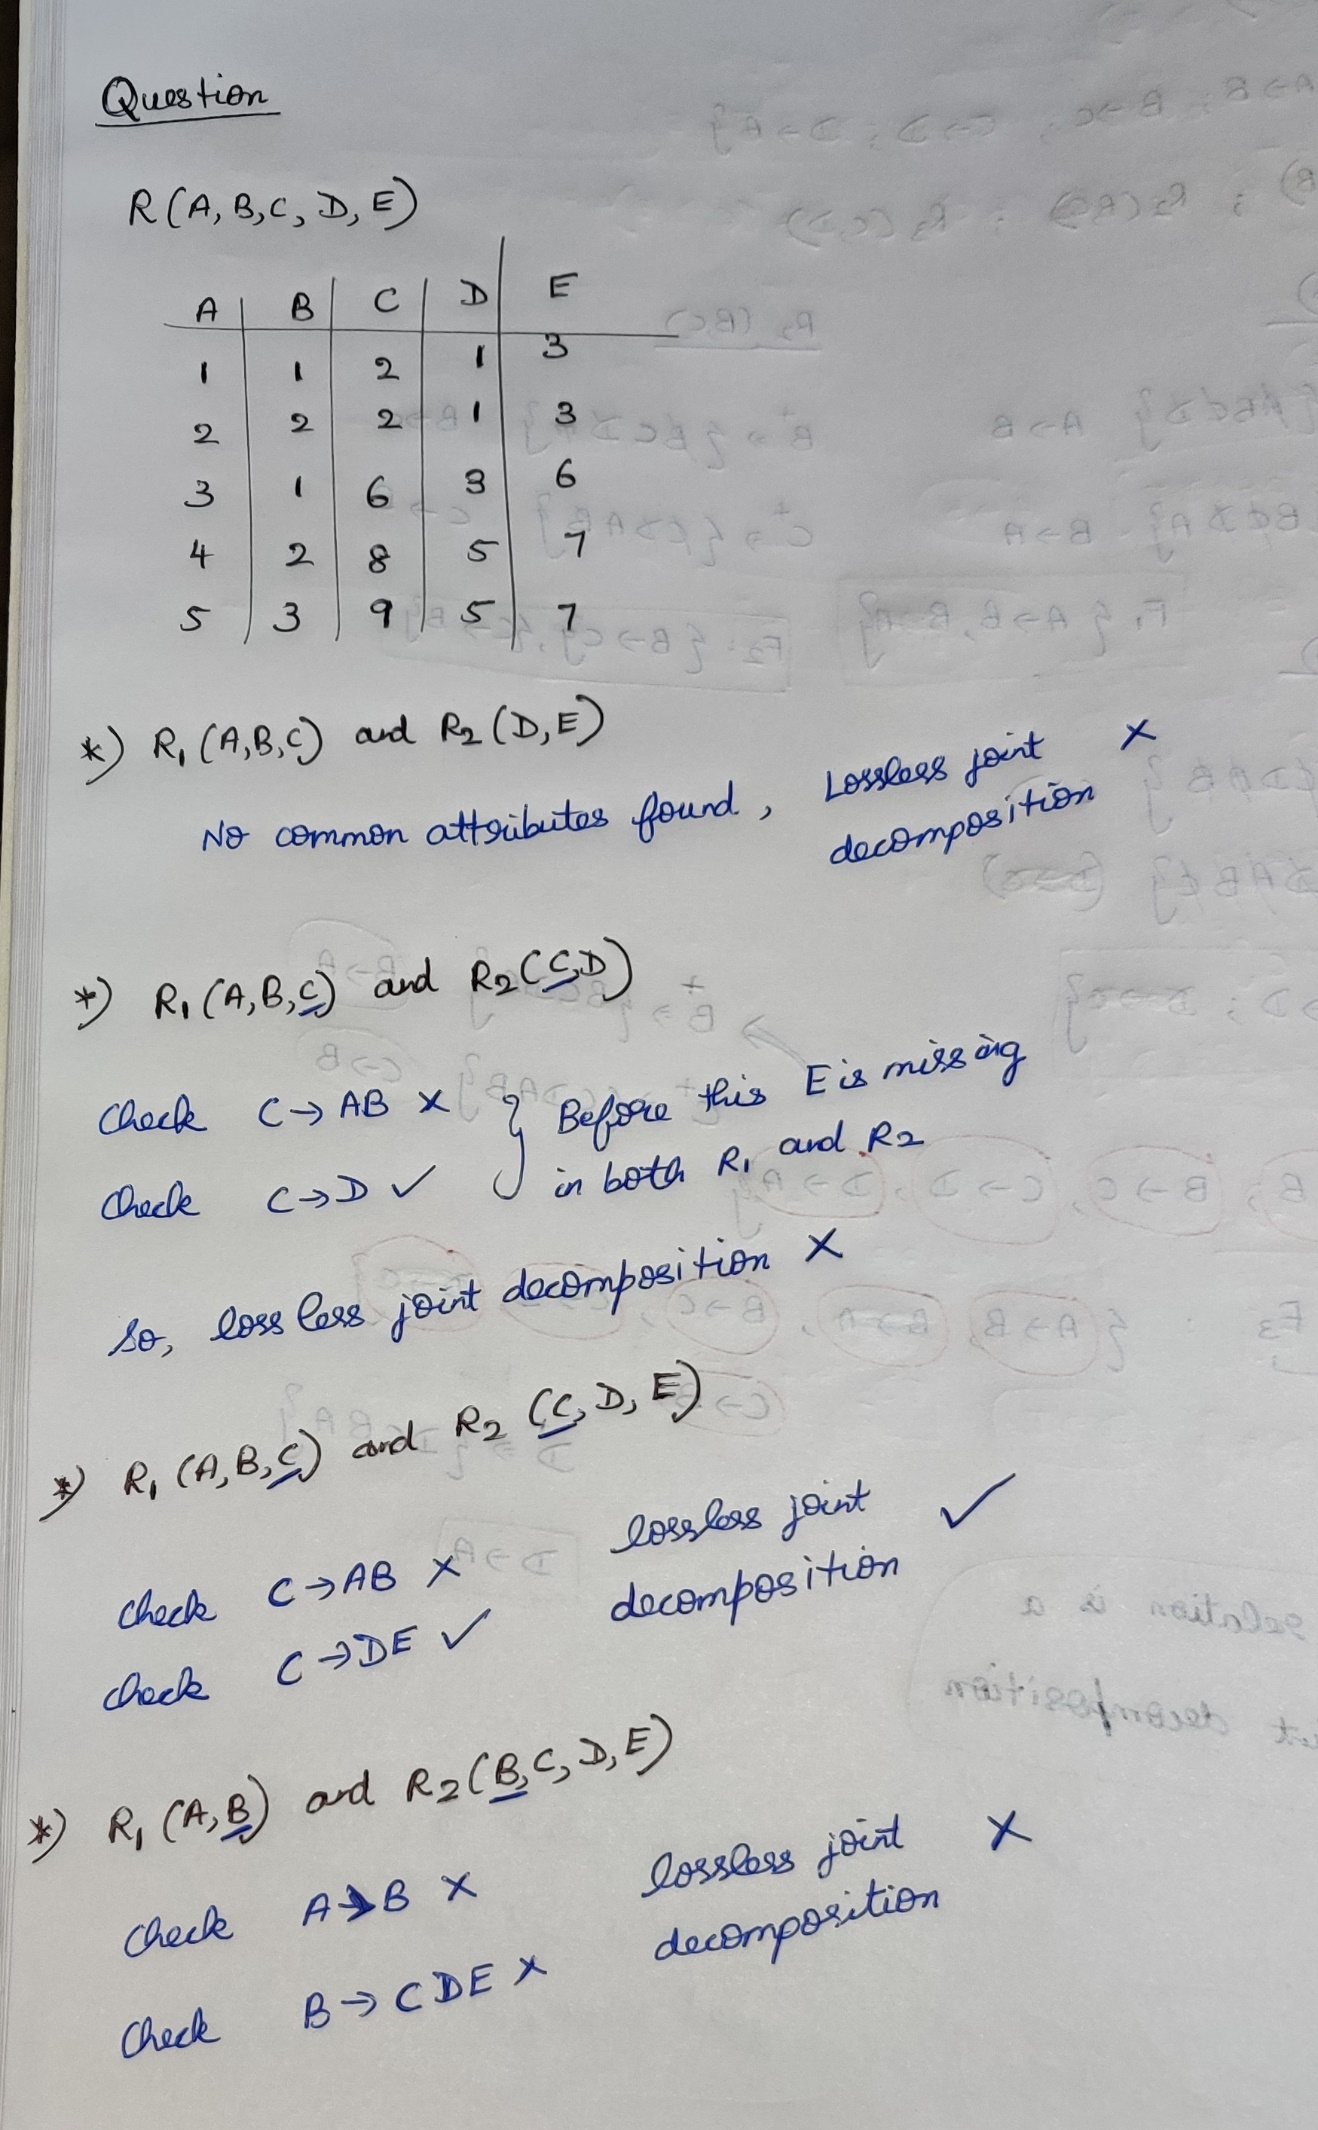 Question
R(A, B, C, D, E)
A B C D E
1 1 2 1 3
2 2 2 1 3
3 1 6 3 6
4 2 8 5 7
5 3 9 5 7
*) R1 (A, B, C) and R2 (D, E)
No common attributes found, Lossless joint decomposition ×
*) R1 (A, B, C) and R2 (C, D)
Check C → AB × } Before this E is missing
Check C → D ✓ in both R1 and R2
So, loss less joint decomposition ×
*) R1 (A, B, C) and R2 (C, D, E)
check C → AB × lossless joint ✓
check C → DE ✓ decomposition
*) R1 (A, B) and R2 (B, C, D, E)
Check A → B × lossless joint ×
Check B → CDE × decomposition